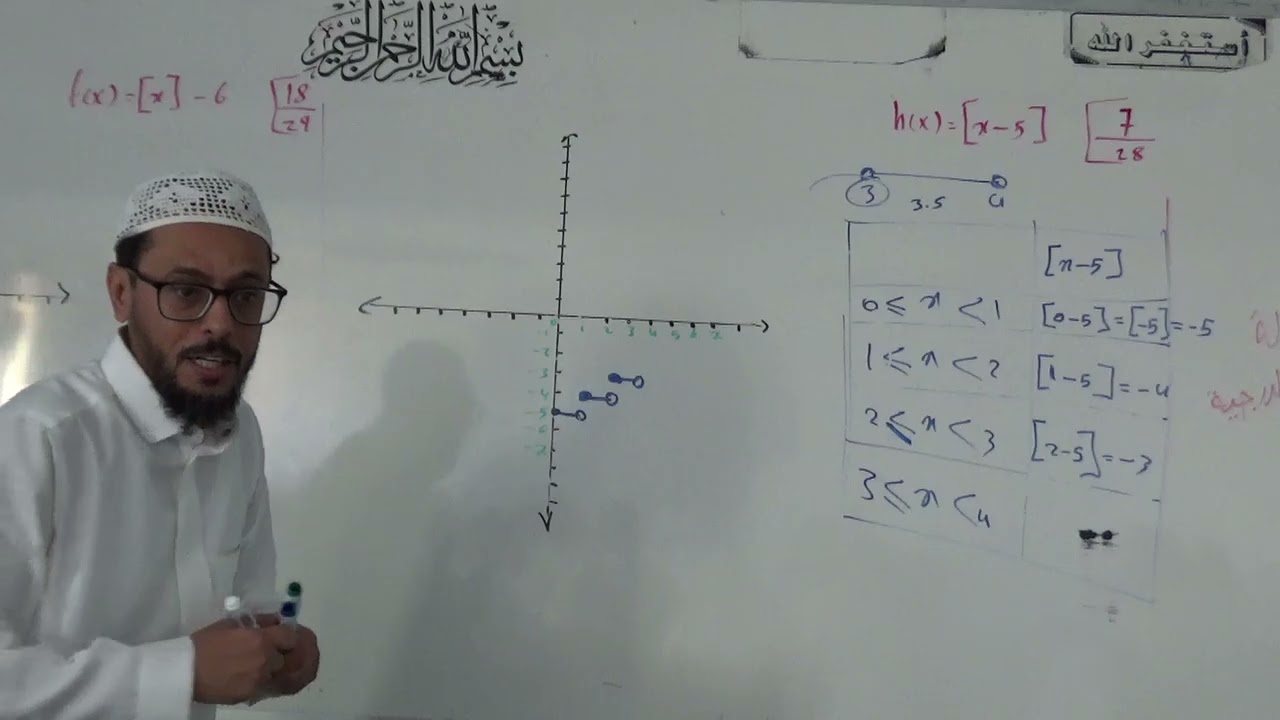 بسم الله الرحمن الرحيم
أستغفر الله
f(x)=[x]-6 18/29
h(x)=[x-5] 7/28
3 3.5 4
[x-5]
0≤x<1 [0-5]=[-5]=-5
1≤x<2 [1-5]=-4
2≤x<3 [2-5]=-3
3≤x<4
0 1 2 3 4 5 6 7
-1
-2
-3
-4
-5
-6
-7